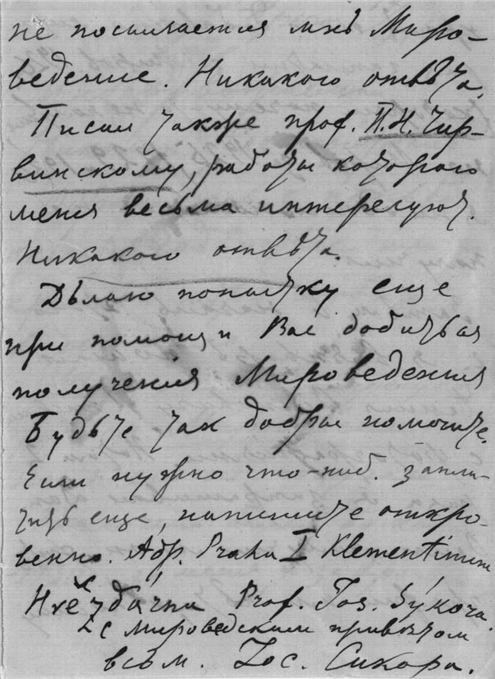 не посылается мнѣ Миро-
ведение. Никакого отвѣта.
Писал также проф. П.Н. Чир-
винскому, работы которого
меня весьма интересуют.
Никакого отвѣта.
Дѣлаю попытку еще
при помощи Вас добиться
получения Мироведения
Будьте так добры помочите.
Если нужно что-ниб. запла-
тить еще, напишите откро-
венно. Адр. Praha I Klementinum
Hvězdárna Prof. Jos. Sýkora.
С мироведским привѣтом
всѣм. Іос. Сикора.